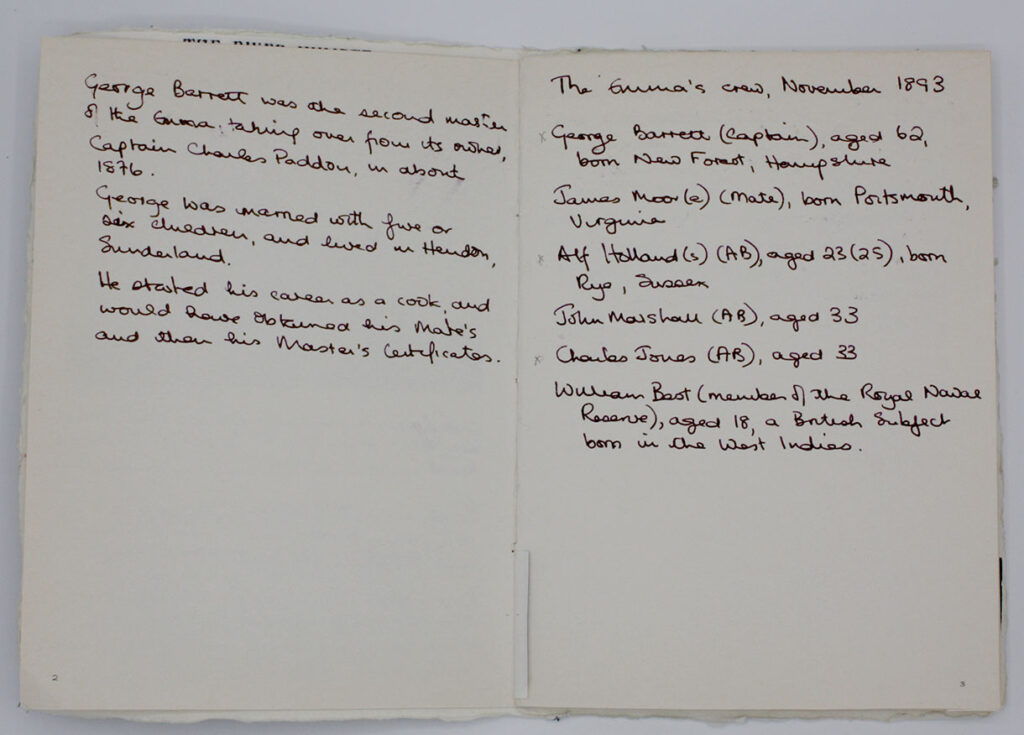 George Barrett was the second master
of the Emma, taking over from its owner,
Captain Charles Paddon, in about
1876.
George was married with five or
six children, and lived in Hendon,
Sunderland.
He started his career as a cook, and
would have obtained his Mate's
and then his Master's Certificates.
2
The Emma's crew, November 1893
x George Barrett (Captain), aged 62,
born New Forest, Hampshire
James Moor(e) (Mate), born Portsmouth,
Virginia
x Alf Holland(s) (AB), aged 23(25), born
Rye, Sussex
John Marshall (AB), aged 33
x Charles Jones (AB), aged 33
William Best (member of the Royal Naval
Reserve), aged 18, a British Subject
born in the West Indies.
3